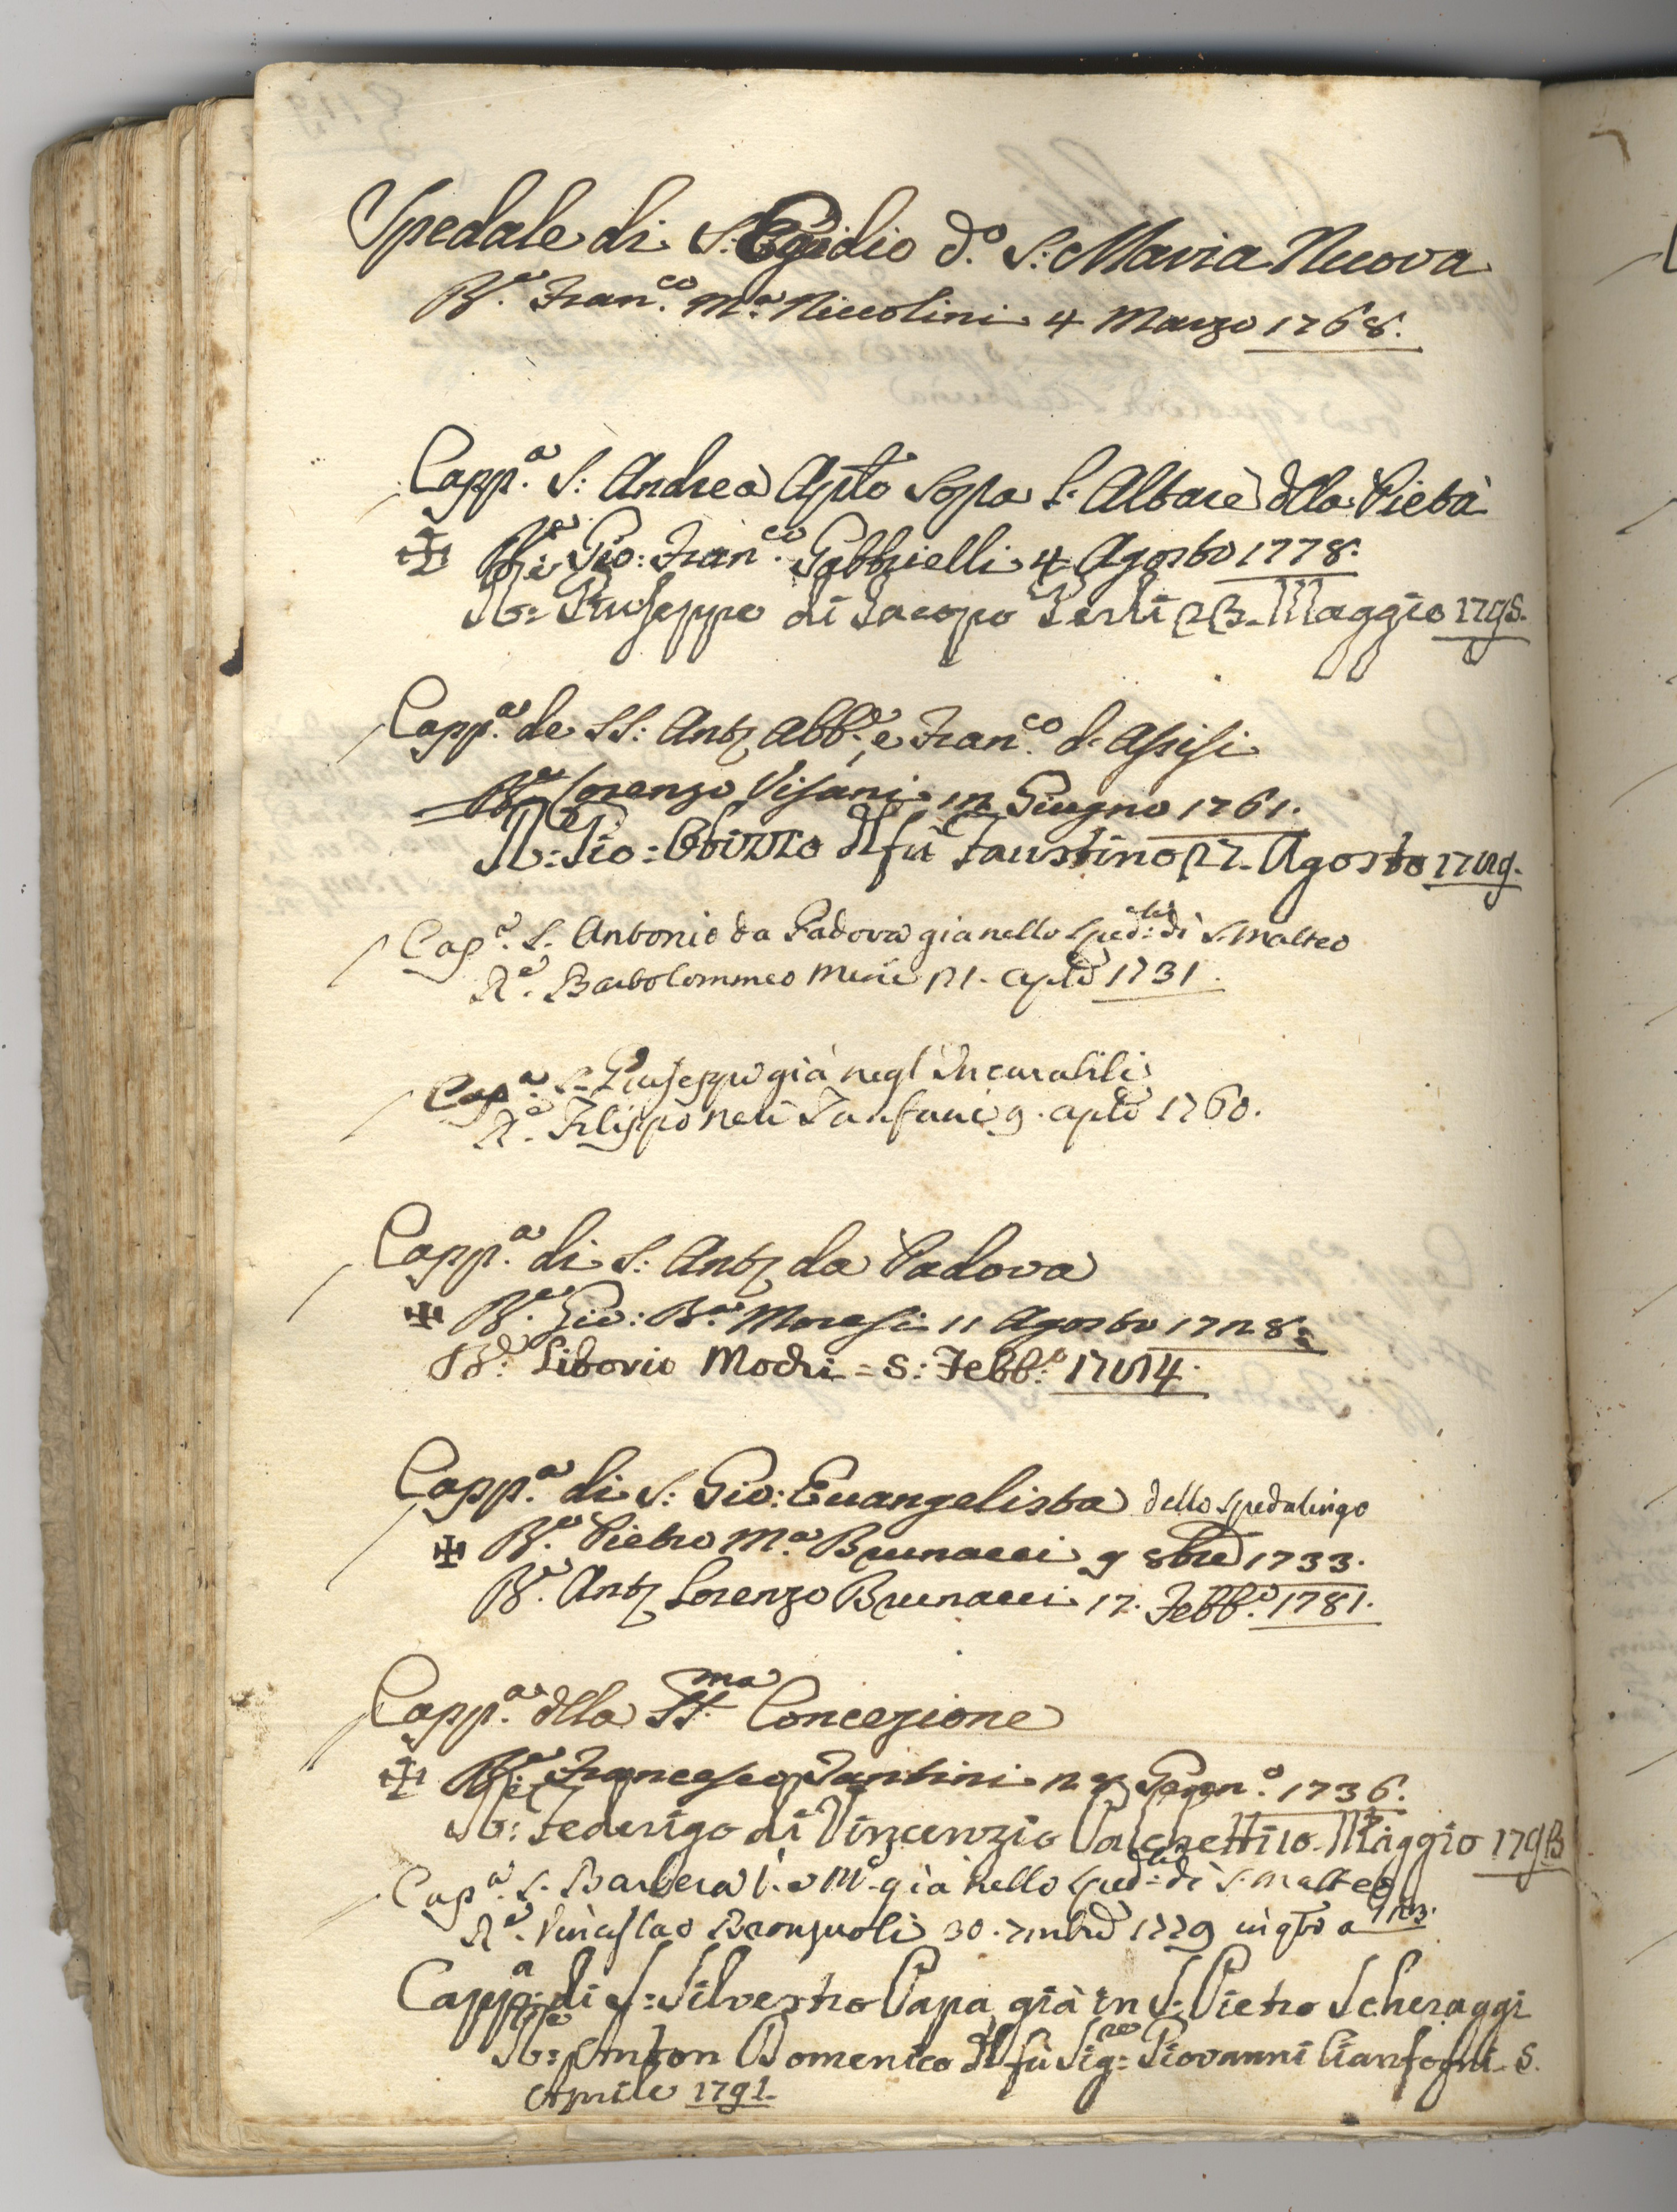 Spedale di S. Egidio d.º S: Maria Nuova
R.e Fran.co M.a Niccolini 4 Marzo 1768.
Capp.a S: Andrea Aplo sopra l'Altare dlla Pietà
R.e Gio: Fran.co Gabbrielli 4 Agosto 1778.
R:e Giuseppe di Jacopo Maggio 179
Capp.a de SS: Anto Abb.e e Fran.co d'Assisi
R.e Lorenzo Visani Giugno 1761.
R:e Gio: Obizzo dl fu Faustino Agosto
Cap.a S. Antonio da Padova gia nello Sped:le di S. Matteo
R.e Bartolommeo aple 1731.
Cap.a S. Giuseppe già negl'Incurabili
R.e Filippo Neri Tanfani 9. aple 1760.
Capp.a di S: Anto da Padova
R.e Gio: B.a Moresi 11 Agosto
R.e Liborio Modri = : Febb.o
Capp.a di S: Gio: Evangelista dello Spedalingo
R.e Pietro M.a Brunacci 9 8bre 1733.
R.e Anto Lorenzo Brunacci 17. Febb.o 1781.
Capp.a dlla SS.ma Concezione
R.e Francesco Santini Genn.o 1736.
R:e Federigo di Vincenzio Maggio 179
Cap.a S. Barbera V. e M. già nello Sped:le di S. Matteo
R.e Vincislao Bronzuoli 30. 7mbre
Capp:a di S: Silvestro Papa già in S: Pietro Scheraggi
R:e Anton Domenico dl fù Sig:re Giovanni Cianfogni
Aprile 1791.